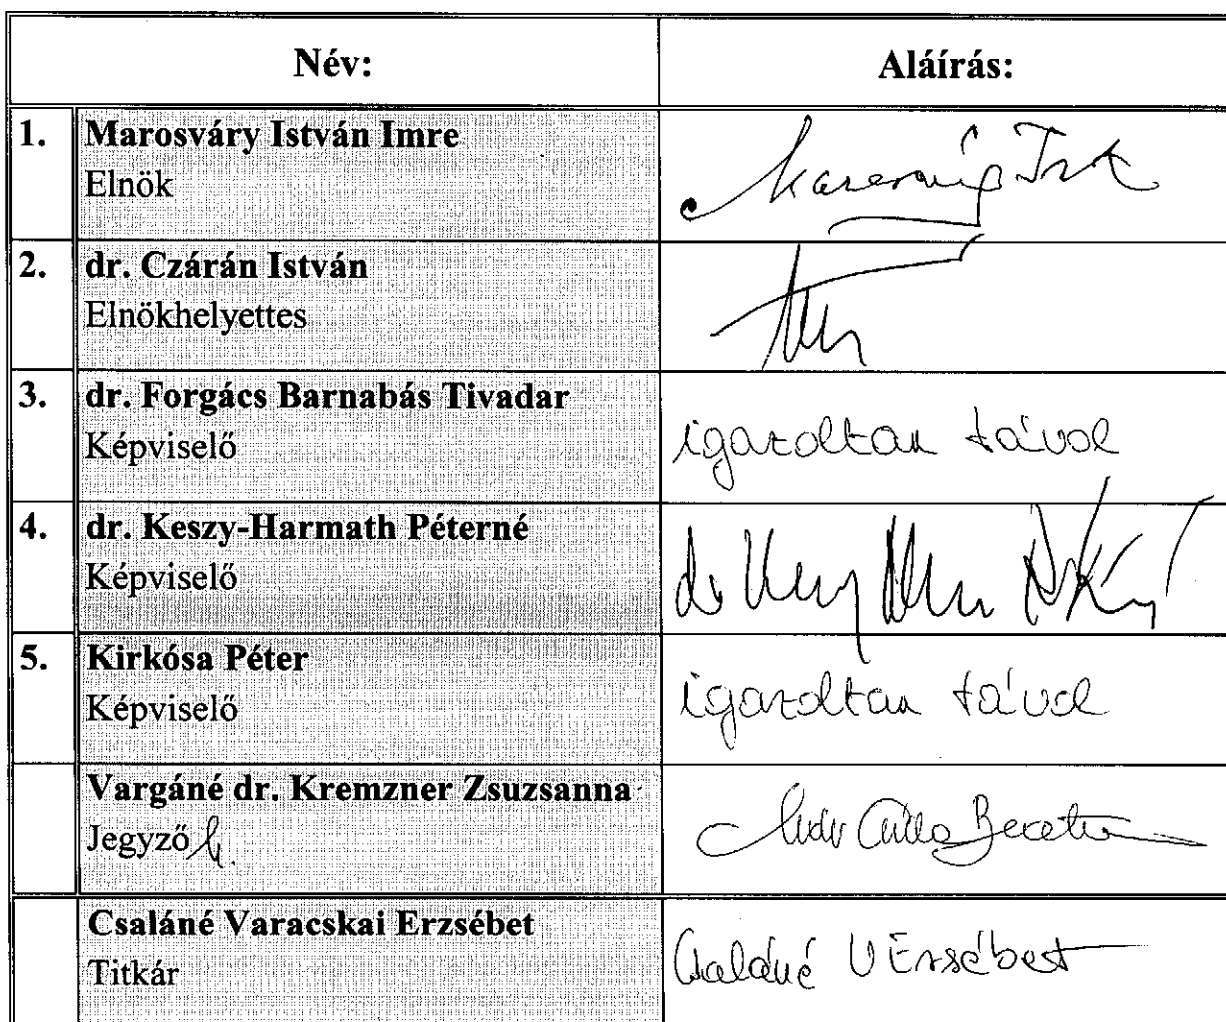 Név: Aláírás:
1. Marosváry István Imre
Elnök
2. dr. Czárán István
Elnökhelyettes
3. dr. Forgács Barnabás Tivadar
Képviselő
igazoltan távol
4. dr. Keszy-Harmath Péterné
Képviselő
5. Kirkósa Péter
Képviselő
igazoltan távol
Vargáné dr. Kremzner Zsuzsanna
Jegyző
Csaláné Varacskai Erzsébet
Titkár
Csaláné V Erzsébet